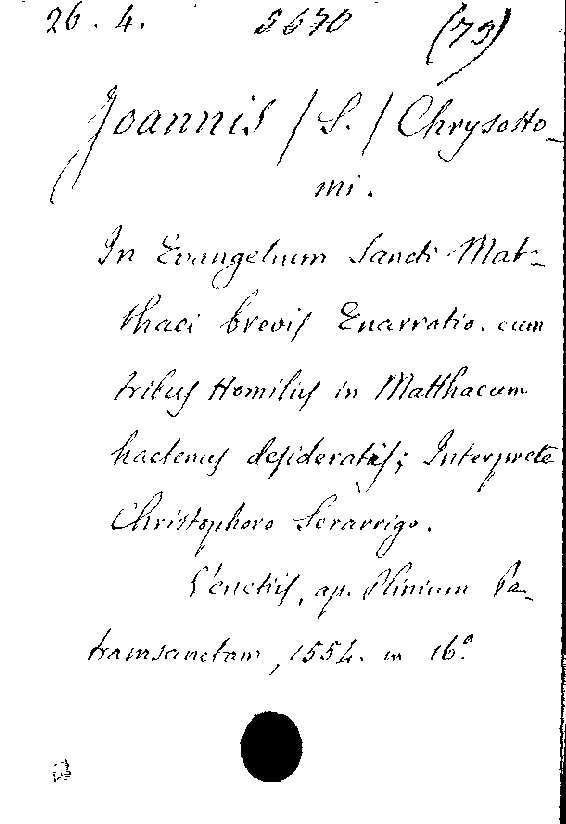 26. 4. 5670 (73)
Joannis / S. / Chrysosto-
mi.
In Evangelium Sancti Mat-
thaei brevis Enarratio. cum
tribus Homiliis in Matthaeum
hactenus desideratis; Interprete
Christophoro Serarrigo.
Venetiis, ap. Plinium Pe-
tramsanctam, 1554. in 16º